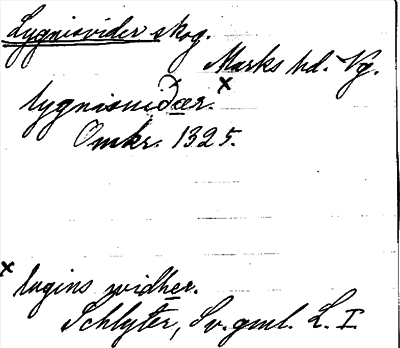 Lygnisvider skog.
Marks hd. Vg.
lygnisuiðær. x
Omkr. 1325.
x lugins widher.
Schlyter, Sv. gml. L. I.